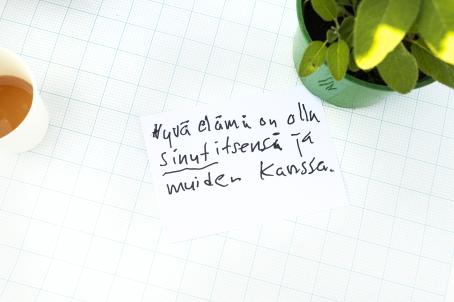 Hyvä elämä on olla
sinut itsensä ja
muiden kanssa.